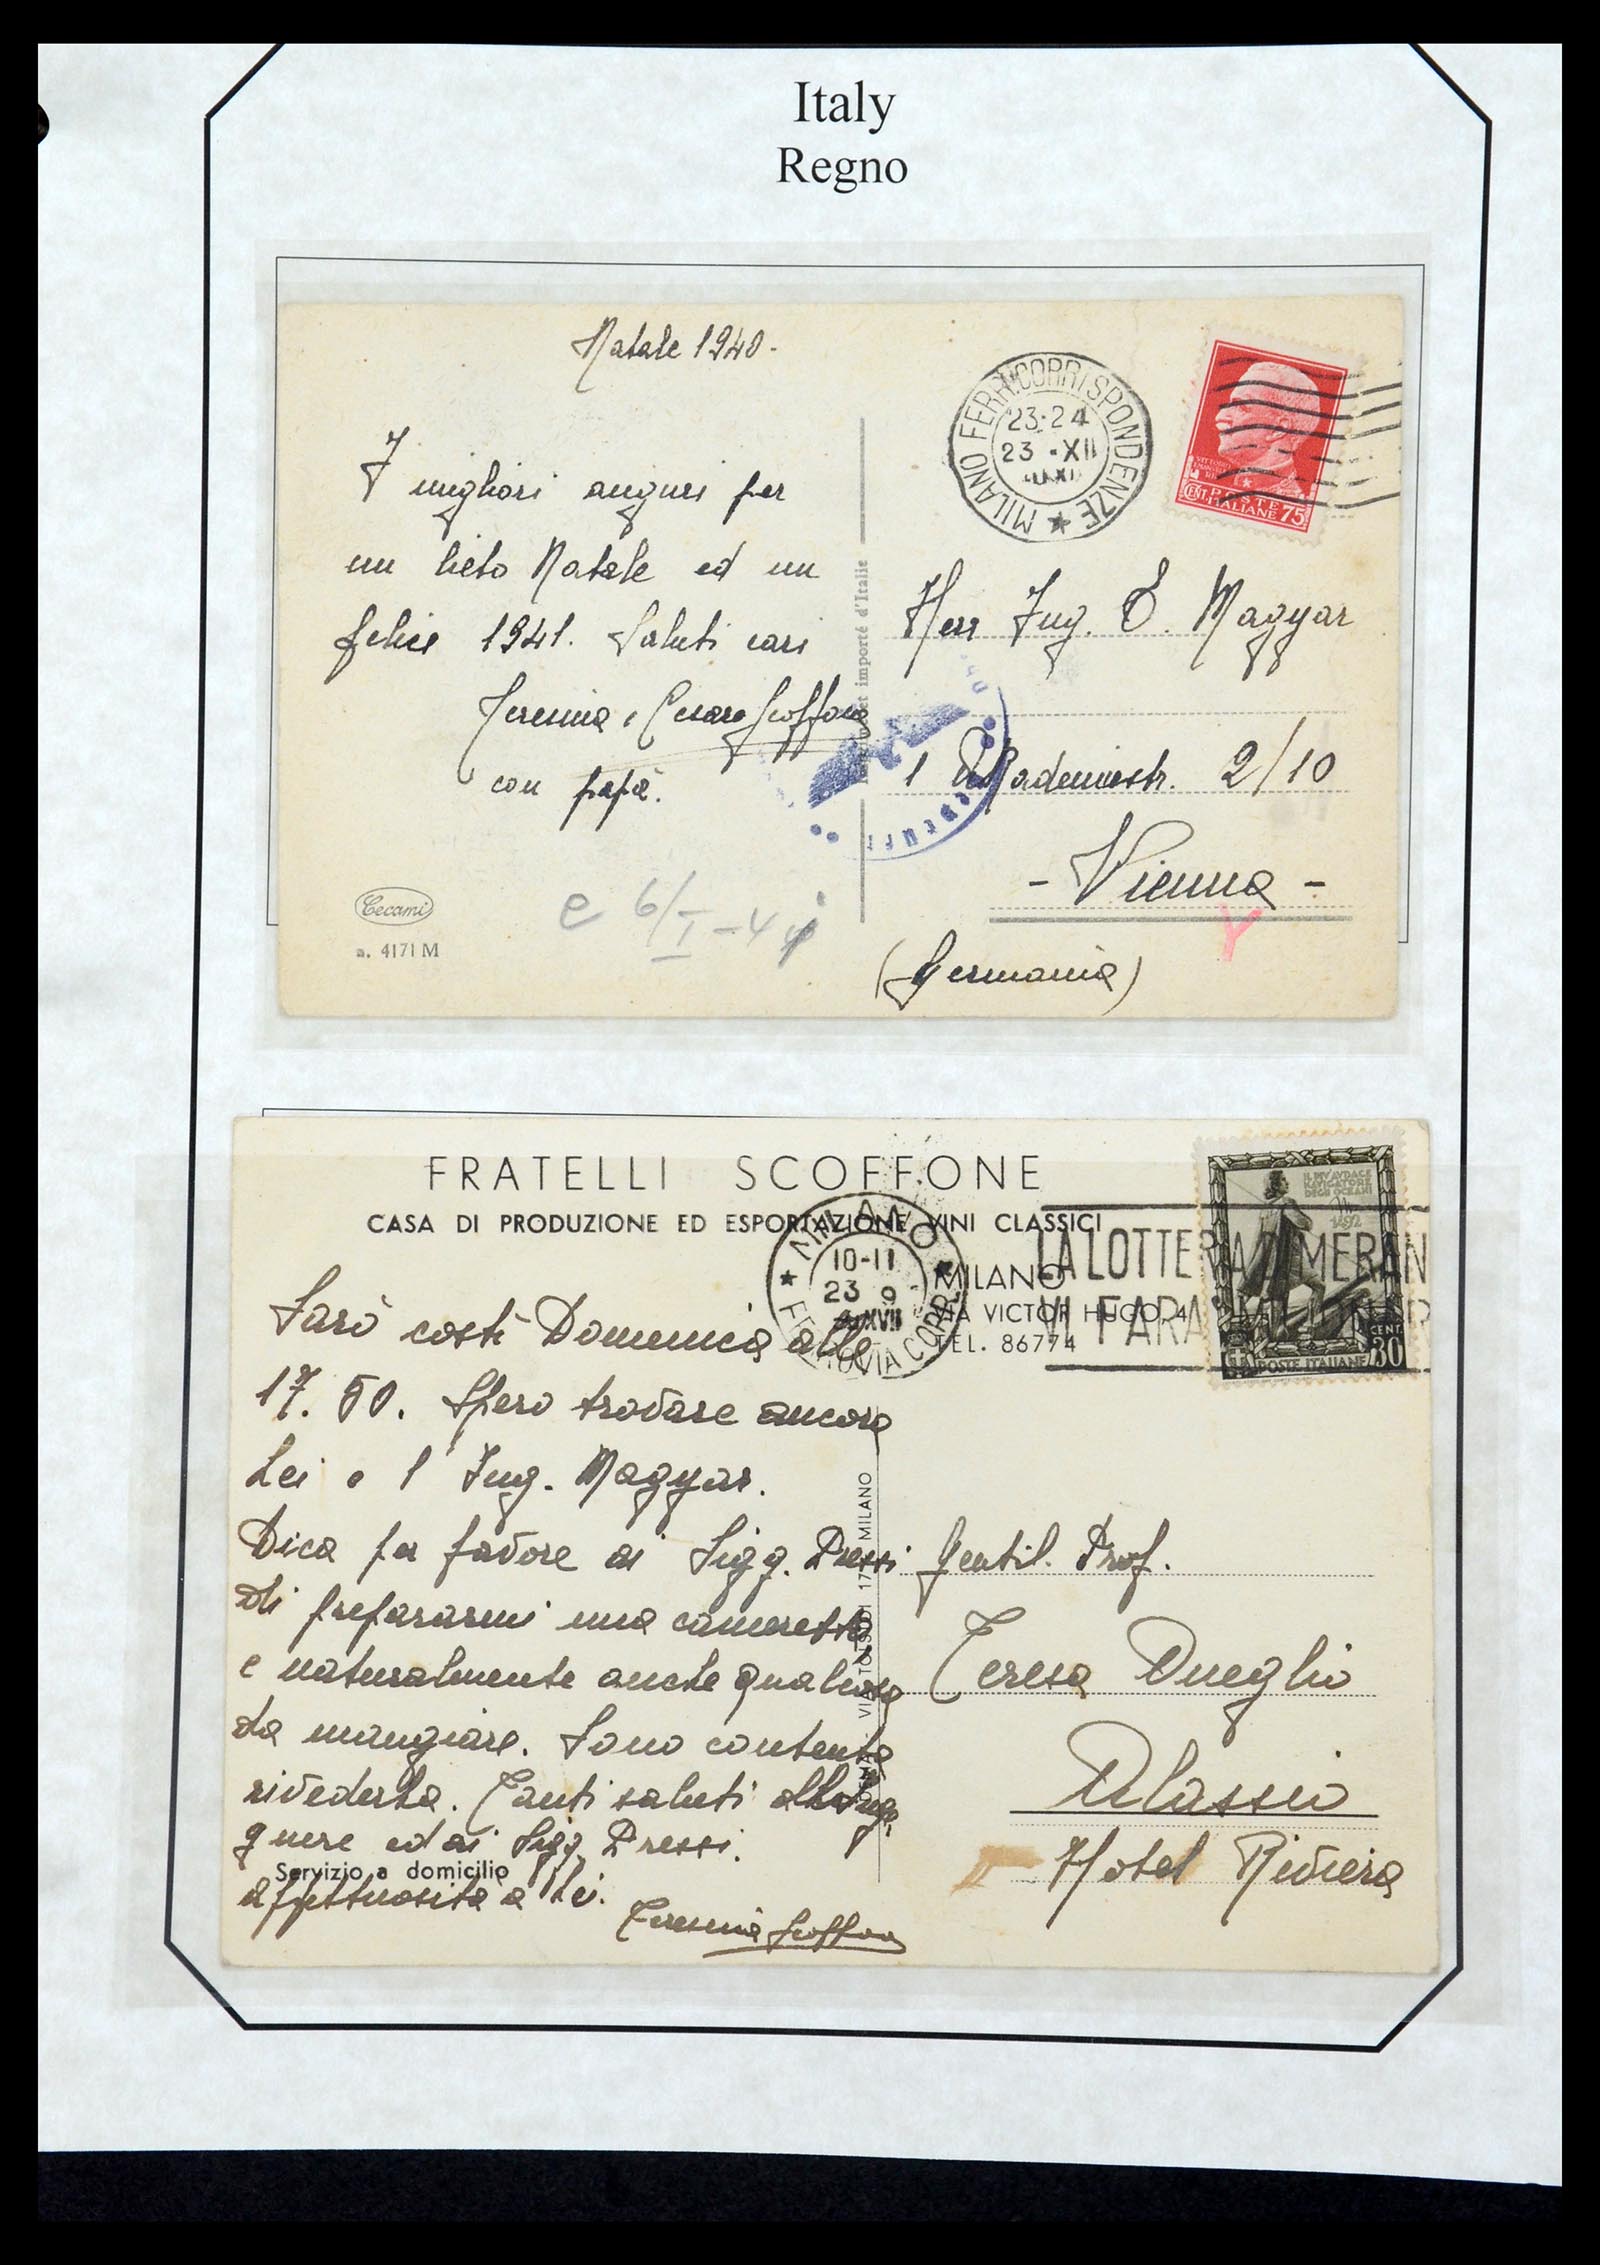 Italy
Regno
Natale 1940.
I migliori auguri per
un lieto Natale ed un
felice 1941. Saluti cari
Teresina e Cesare Scoffone
con papà.
Cecami
n. 4171 M
e 6/I-41
importé d'Italie
MILANO FERR. CORRISPONDENZE
23·24
23 · XII
POSTE ITALIANE
CENT. 75
Herr Ing. E. Magyar
1 Akademiestr. 2/10
- Vienna -
(Germania)
FRATELLI SCOFFONE
CASA DI PRODUZIONE ED ESPORTAZIONE VINI CLASSICI
MILANO
VIA VICTOR HUGO, 4
TEL. 86774
MILANO FERROVIA CORR.
10-11
23 9
XVII
LA LOTTERIA DI MERAN
VI FARÀ
IL NVY AVDACE
NAVIGATORE
DEGLI OCEANI
1492
POSTE ITALIANE
CENT. 30
Sarò costì Domenica alle
17.50. Spero trovare ancora
Lei e l'Ing. Magyar.
Dica per favore ai Sigg. Pressi
di prepararmi una cameretta
e naturalmente anche qualcosa
da mangiare. Sono contenta
rivederla. Tanti saluti all'Inge-
gnere ed ai Sigg. Pressi.
affettuosità a Lei.
Teresina Scoffone
Servizio a domicilio
17 - MILANO
Gentil. Prof.
Teresa Oneglio
Alassio
Hotel Riviera